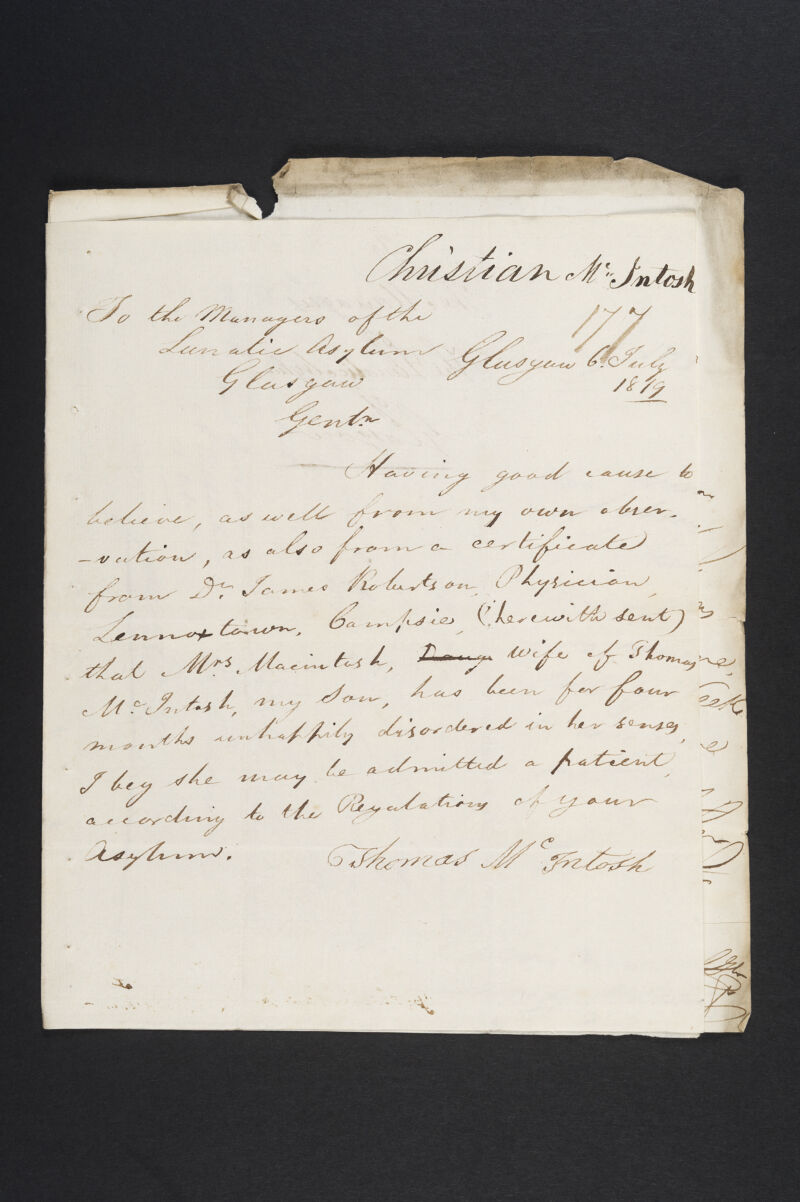 Christian Mc. Intosh
177
To the Managers of the
Lunatic Asylum
Glasgow
Glasgow 6. July
1819
Gentn
Having good cause to
believe, as well from my own obser-
-vation, as also from a certificate
from Dr. James Robertson, Physician,
Lennoxtown, Campsie, (herewith sent)
that Mrs. Macintosh, Daug wife of Thomas
McIntosh, my Son, has been for four
months unhappily disordered in her senses,
I beg she may be admitted a patient,
according to the Regulations of your
Asylum.
Thomas Mc Intosh